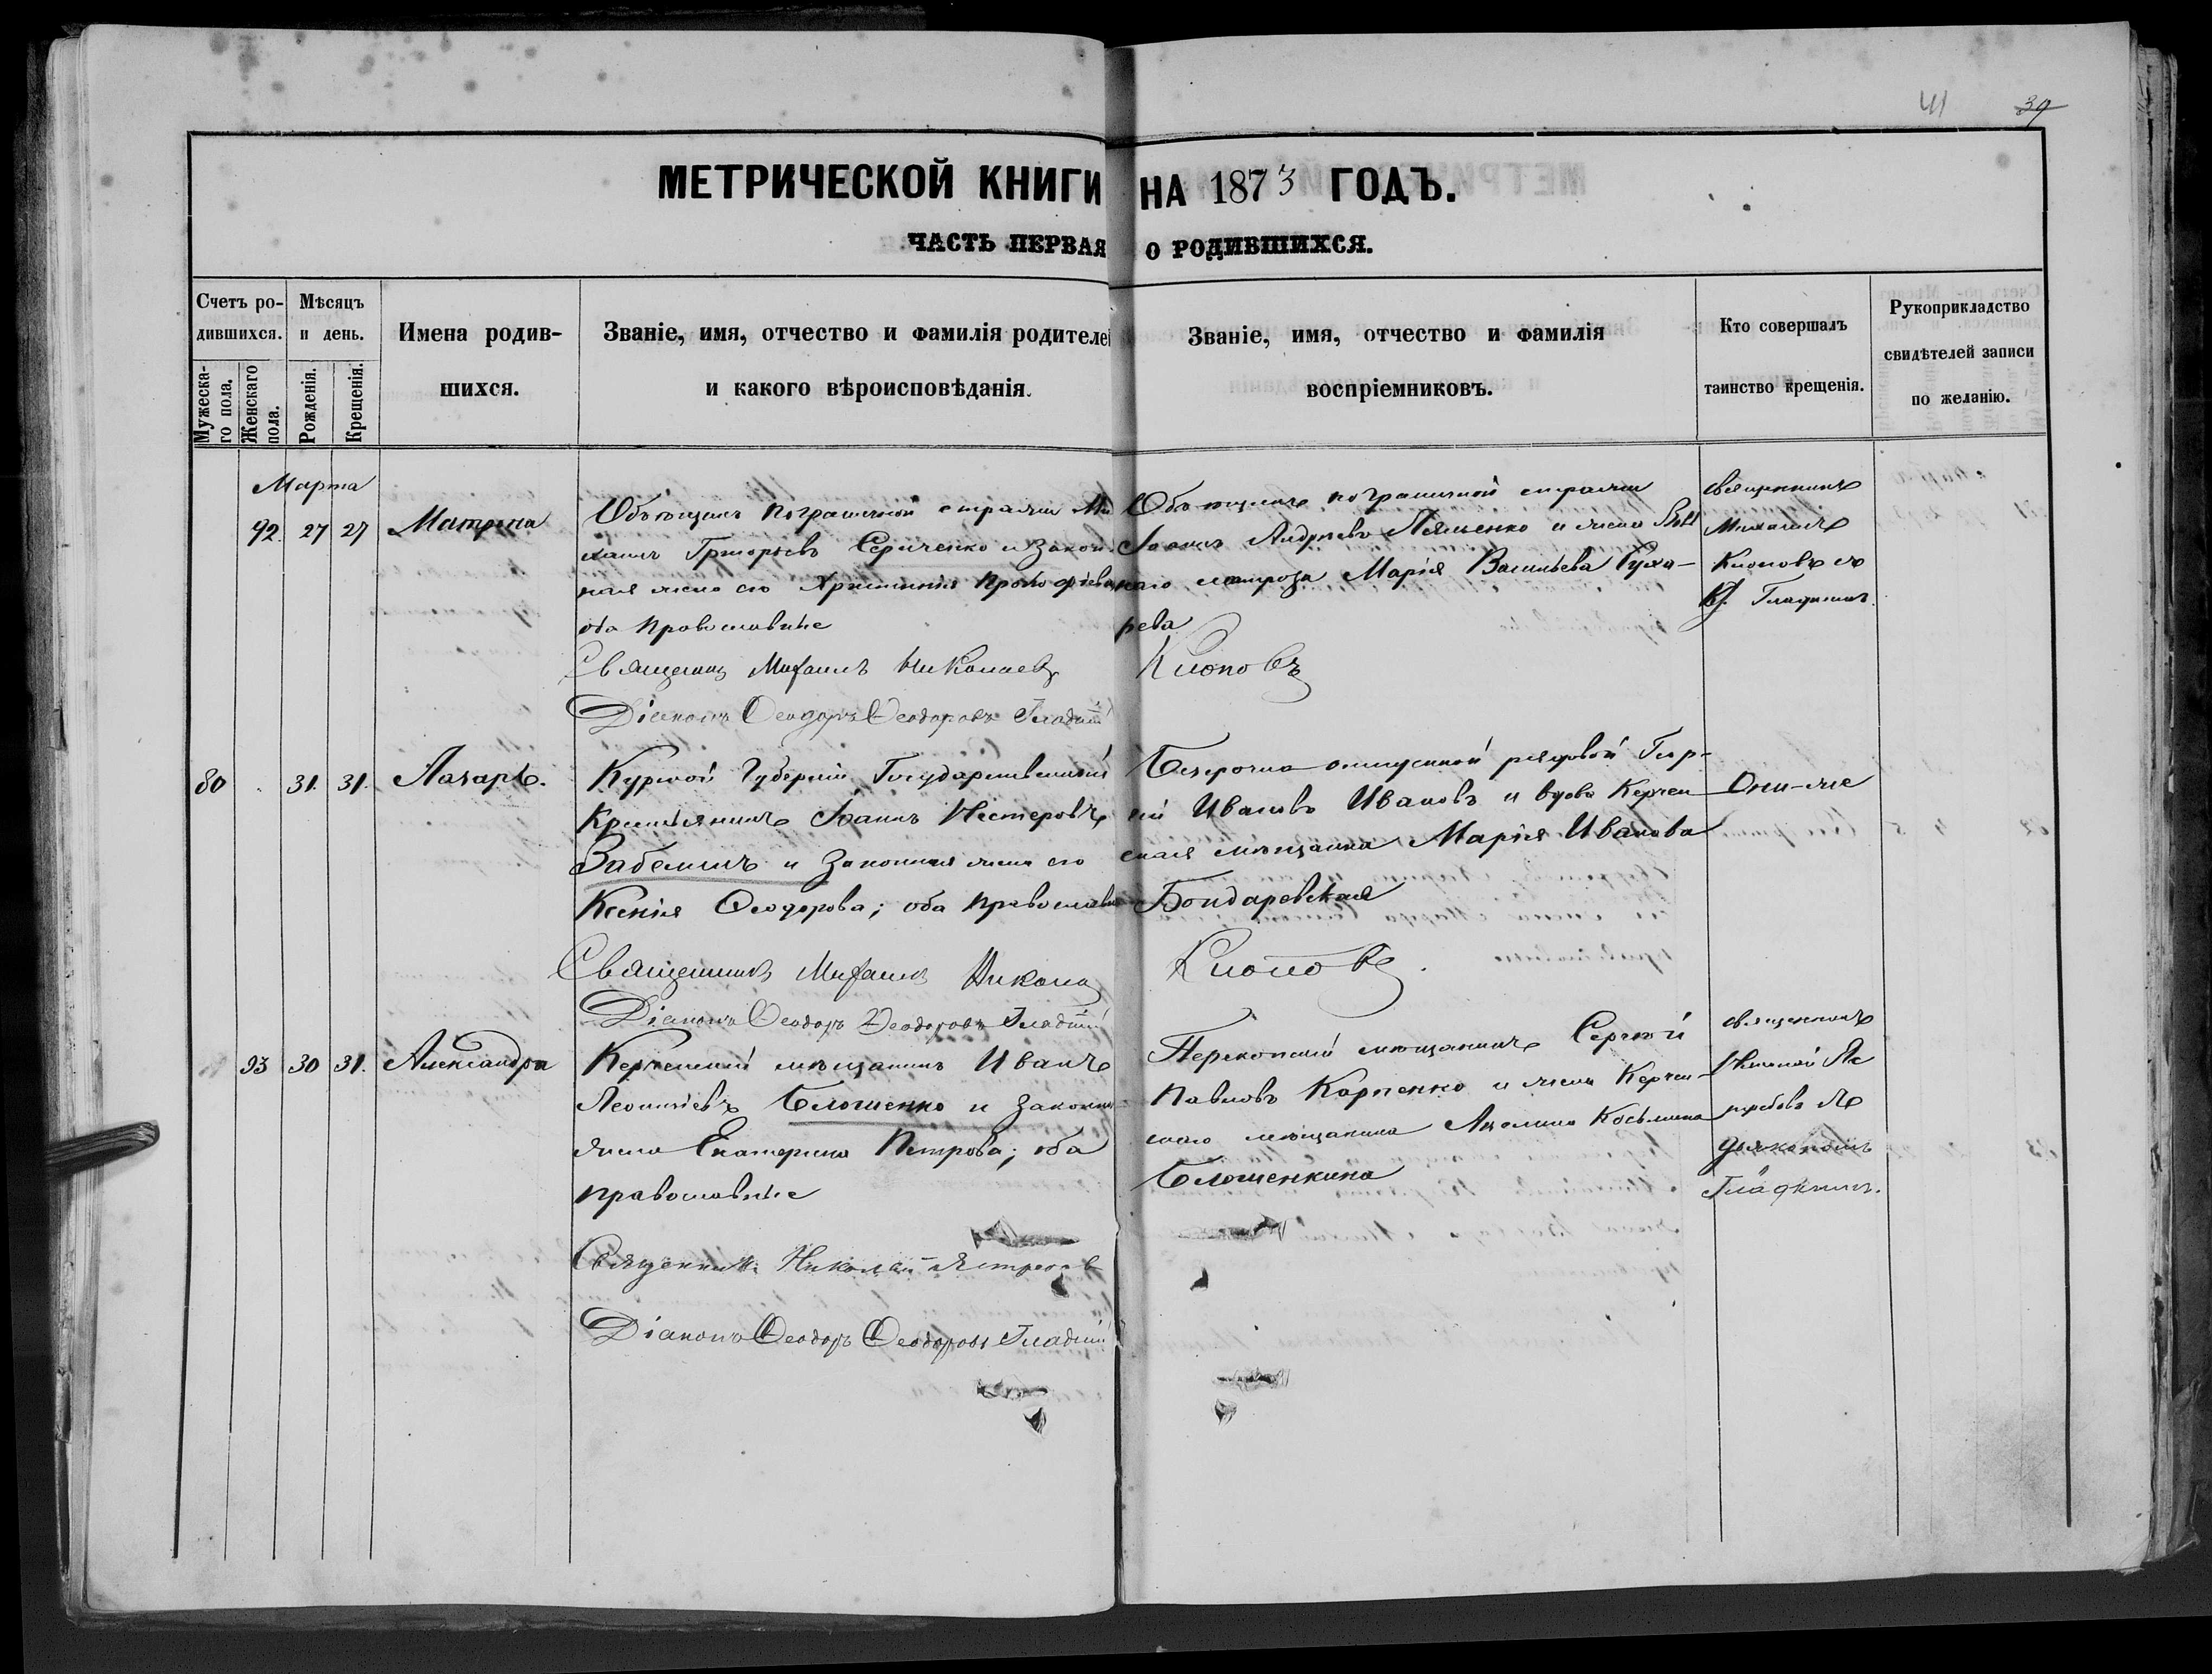 41 39
МЕТРИЧЕСКОЙ КНИГИ НА 1873 ГОДЪ.
ЧАСТЬ ПЕРВАЯ О РОДИВШИХСЯ.
Счетъ ро-
дившихся.
Мужеска-
го пола.
Женскаго
пола.
Мѣсяцъ
и день.
Рожденія.
Крещенія.
Имена родив-
шихся.
Званіе, имя, отчество и фамилія родителей
и какого вѣроисповѣданія.
Званіе, имя, отчество и фамилія
воспріемниковъ.
Кто совершалъ
таинство крещенія.
Рукоприкладство
свидѣтелей записи
по желанію.
Марта
92. 27 27 Матрона
Объѣщикъ пограничной стражи Ми
хаилъ Григорьевъ Сериченко и закон
ная жена его Христинія Прокофіева
оба православные
Священникъ Михаилъ Николаевъ
Діаконъ Ѳеодоръ Ѳеодоровъ Гладкій
Объѣщикъ пограничной стражи
Іоаннъ Андреевъ и жена
наго матроза Марія Васильева Руха-
рева
Клоповъ
священникъ
Михаилъ
Клоповъ съ
Гладкимъ.
80 31. 31. Лазарь.
Курской Губерніи Государственный
Крестьянинъ Іоаннъ Нестеровъ
Забелинъ и законная жена его
Ксенія Ѳеодорова; оба православн
Священникъ Михаилъ Никола
Діаконъ Ѳеодоръ Ѳеодоровъ Гладкій
Безсрочно отпускной рядовой Геор-
гій Ивановъ Ивановъ и вдова Керчен
ская мѣщанка Марія Иванова
Бондаревская
Клоповъ.
Они-же
93 30 31. Александра
Керченскій мѣщанинъ Иванъ
Леонтіевъ Блошенко и законная
жена Екатерина Петрова; оба
православные
Священникъ Николай Ястребовъ
Діаконъ Ѳеодоръ Ѳеодоровъ Гладкій
Перекопскій мѣщанинъ Сергѣй
Павловъ Карпенко и жена Керчен-
скаго мѣщанина Акелина Косьмина
Блошенкина
священникъ
Николай Яс
требовъ съ
діакономъ
Гладкимъ.